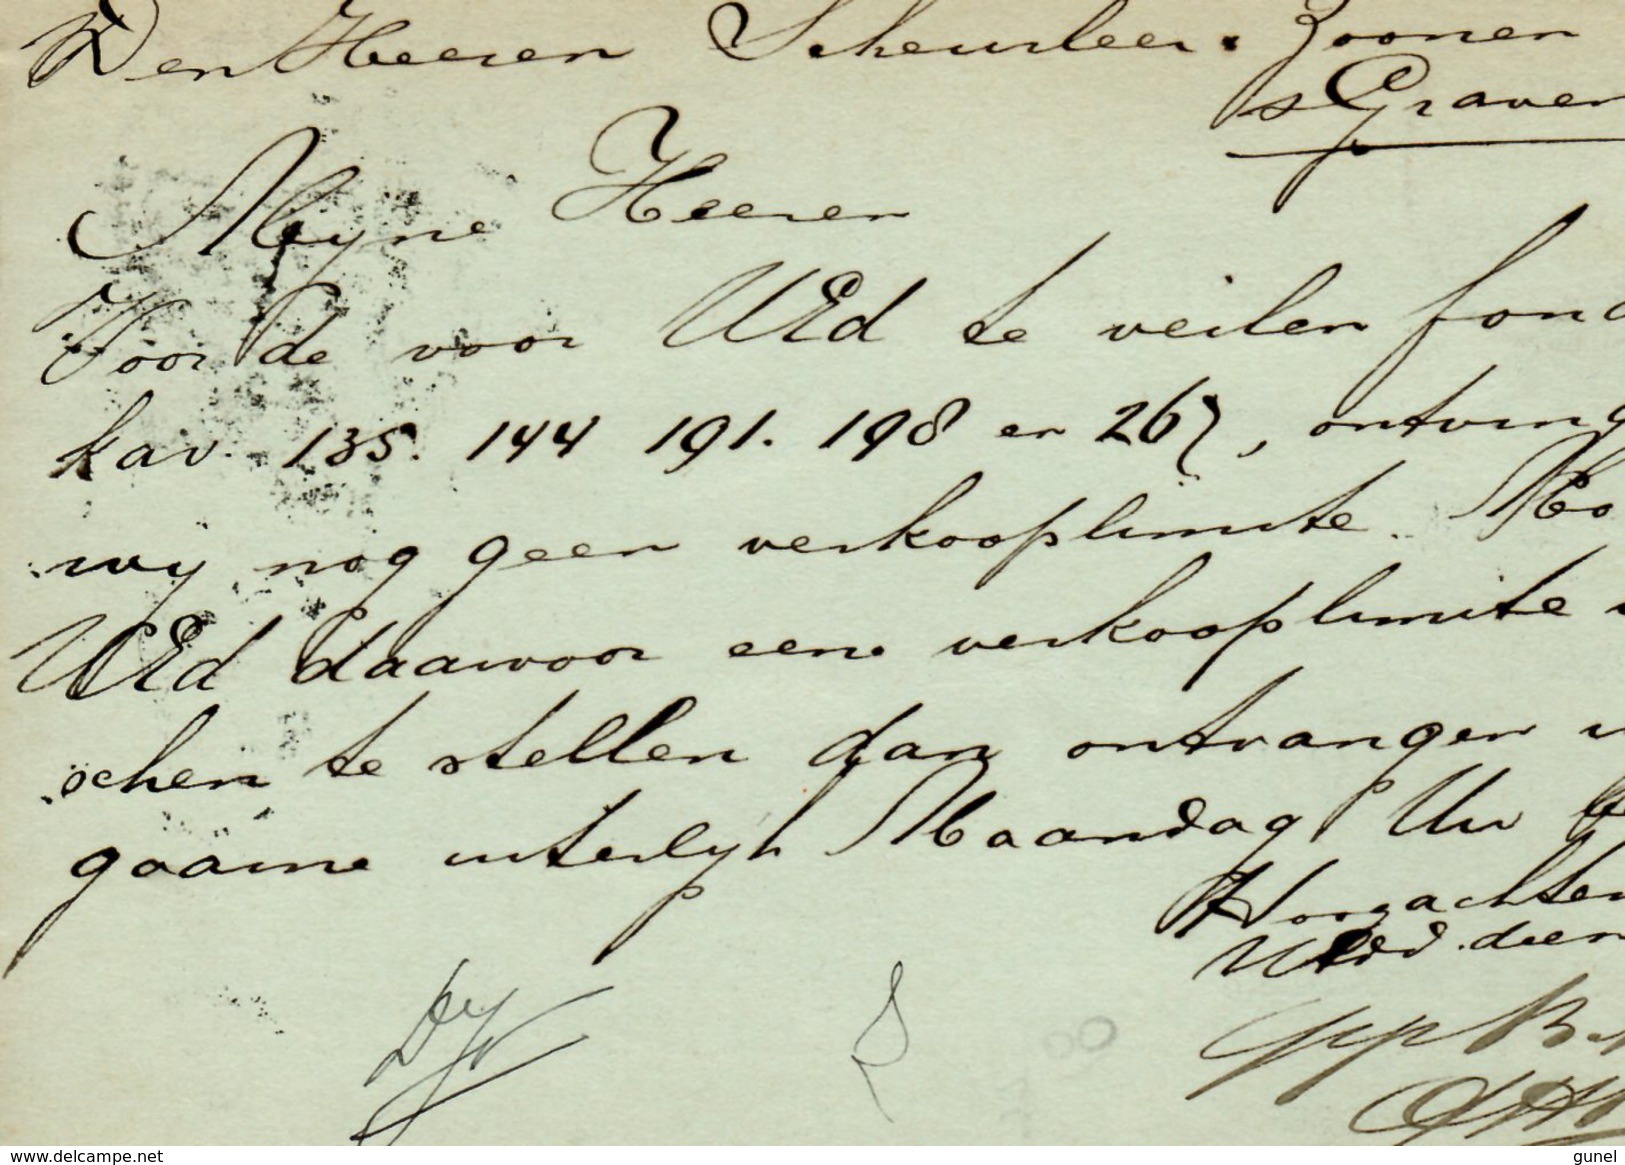 Den Heeren Scheurleer & Zoonen
s Graven
Myne Heeren
Voor de voor UEd te veilen fond
kav. 135. 144 191. 198 en 267, ontving
wy nog geen verkooplimite. Mo
UEd daarvoor eene verkooplimite
schen te stellen dan ontvangen
gaarne uiterlyk Maandag Uw be
Hoogachten
UEdd. dien
www.delcampe.net
gunel